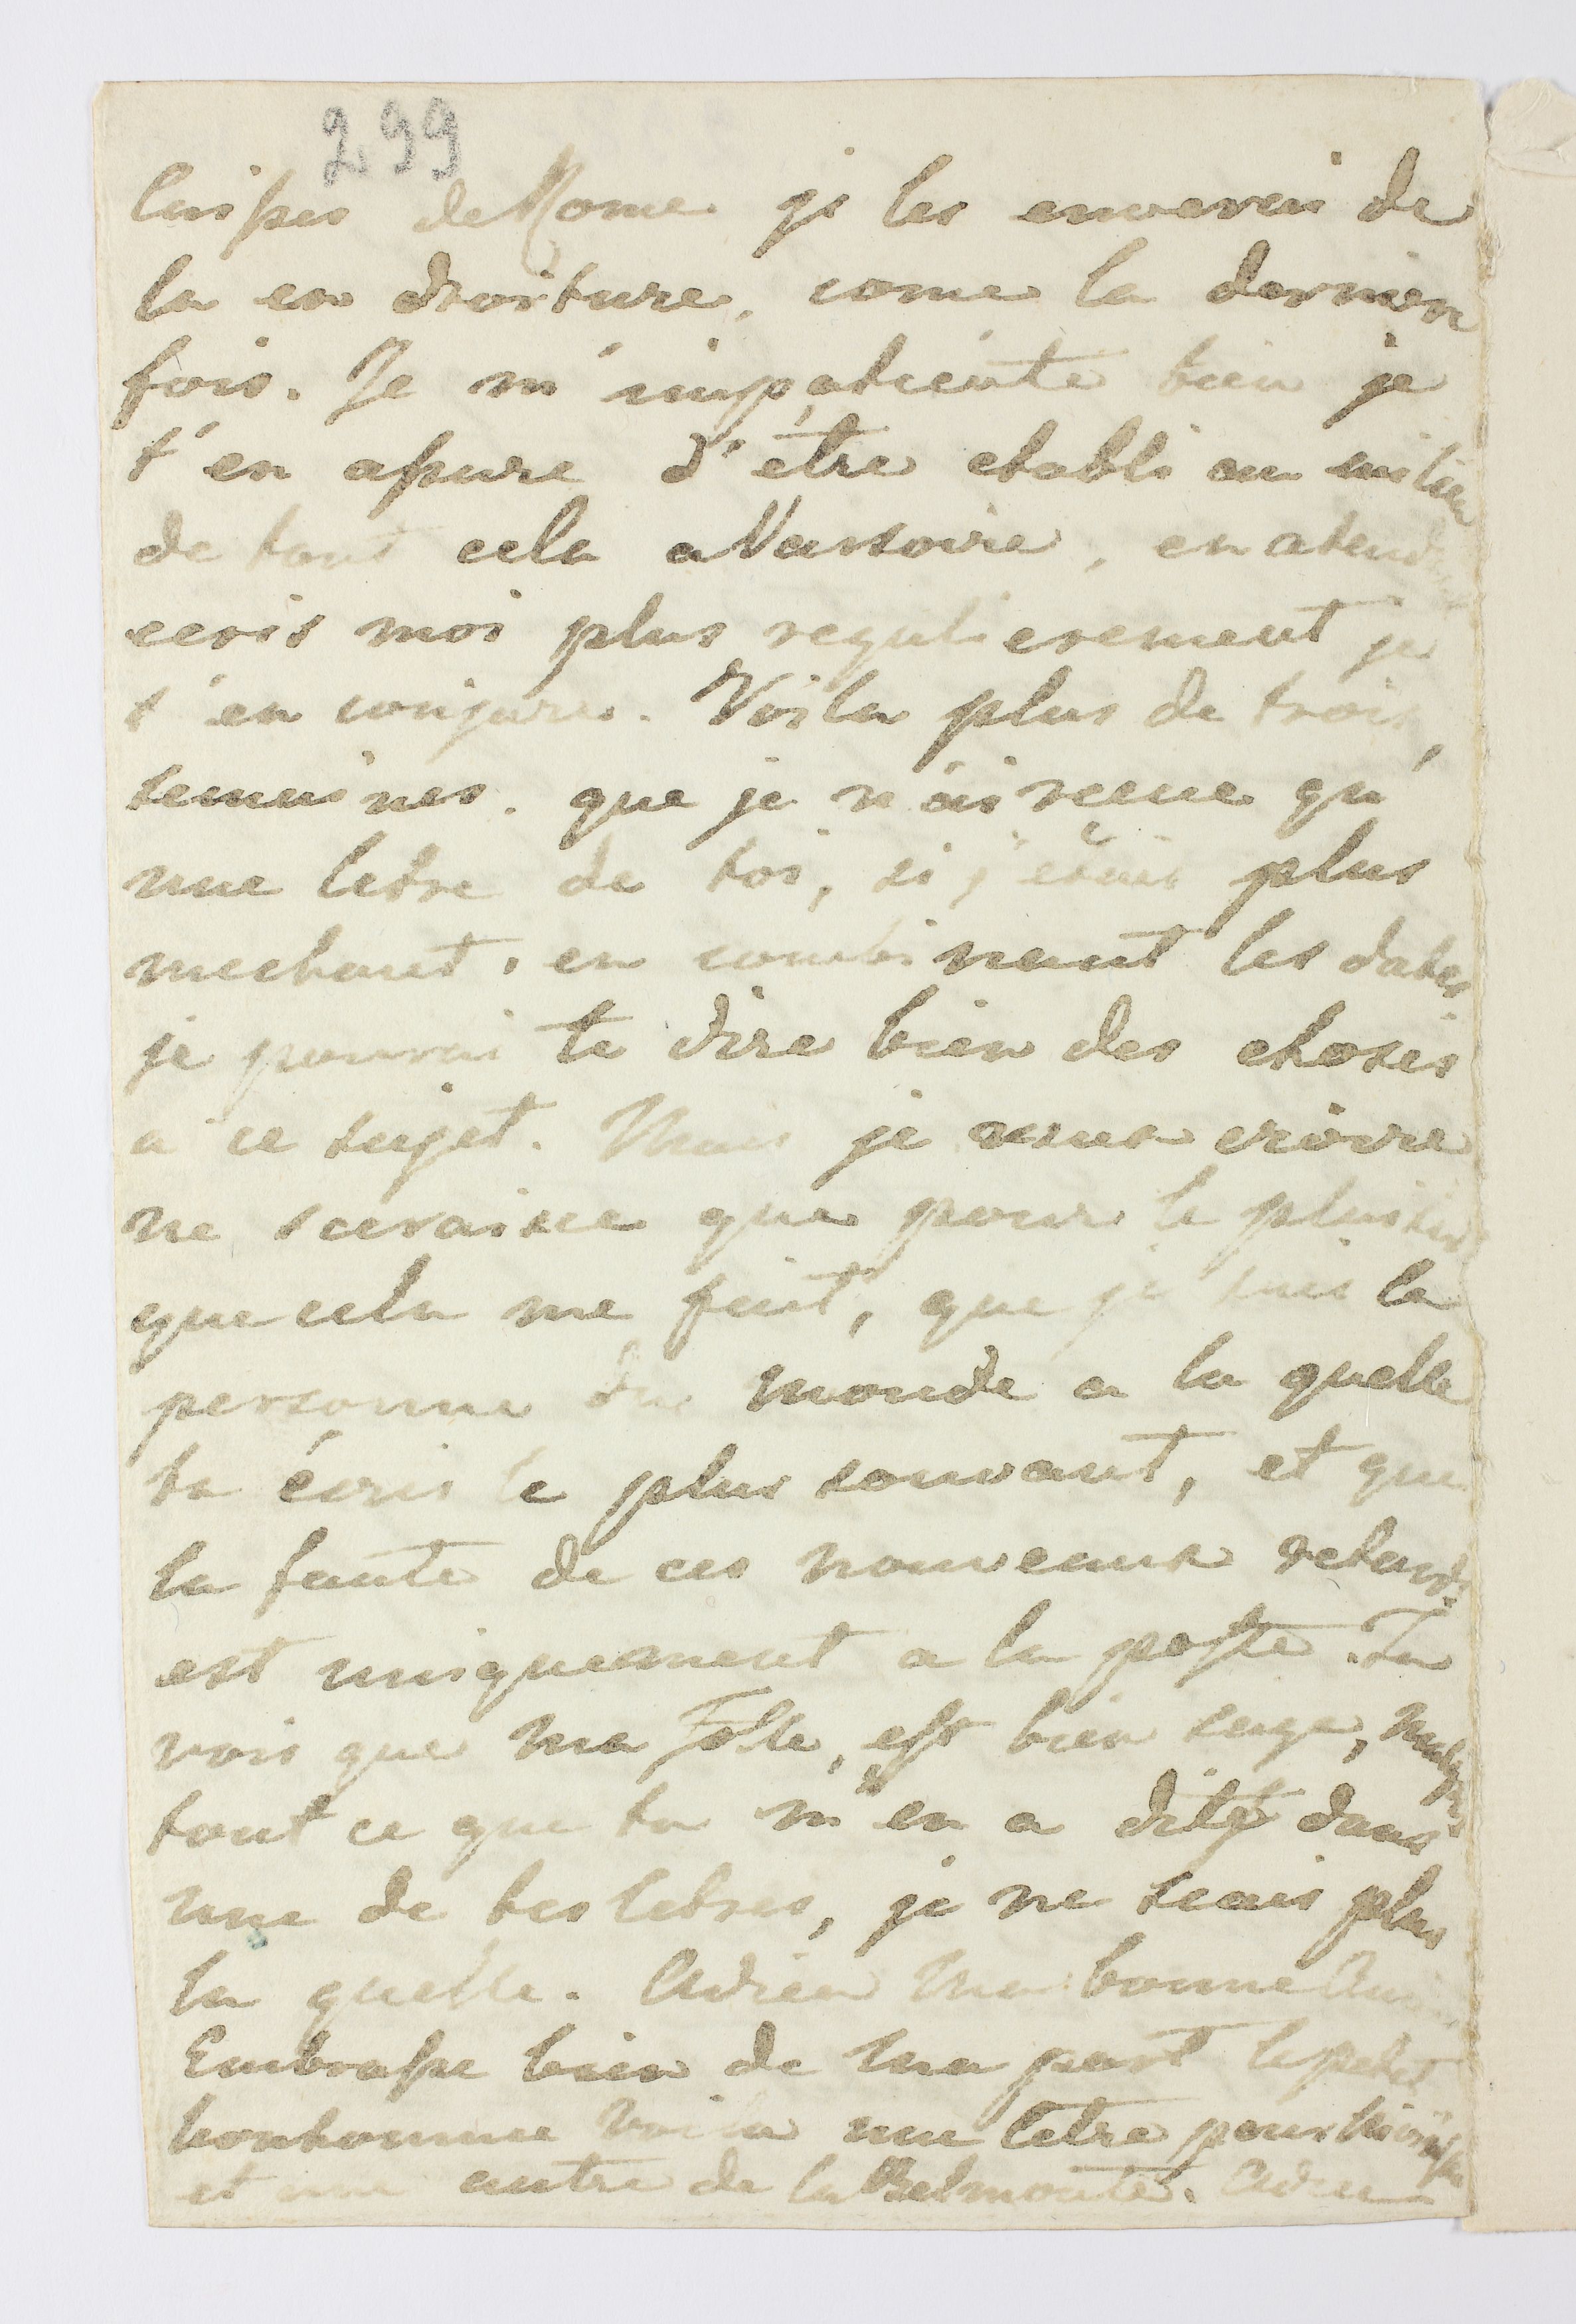 299
caisses de Rome je les enverai de
la en droiture, come la dernier
fois. Je m'impatiente bien je
t'en assure d'être etabli au milieu
de tout cela a Varsovie, en atend
ecris moi plus regulierement je
t'en conjure. Voila plus de trois
semaines. que je n'ai recue qu'
une letre de toi, si j'étais plus
mechant, en combinant les dates
je pourai te dire bien des choses
a ce sujet. Mais je veux croire
ne seraisce que pour le plaisir
que cela me fait, que je suis la
personne du monde a la quelle
tu écris le plus souvant, et que
la faute de ces nouveaux retards
est uniquement a la poste. Tu
vois que ma Folle, est bien sage, malgré
tout ce que tu m'en a dit dans
une de tes letres, je ne scais plus
la quelle. Adieu Ma bonne Amie
Embrasse bien de ma part le petit
bonhomme Voila une letre pour
et une autre de la Belmonte. Adieu